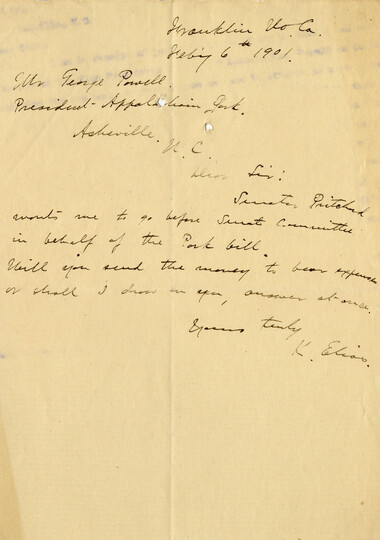 Franklin No. Ca.
Feb'y 6th 1901.
Mr George Powell.
President Appalachian Park.
Asheville.
N. C.
Dear Sir:
Senator Pritchard
wants me to go before Senate Committee
in behalf of the Park bill.
Will you send the money to bear expenses
or shall I draw on you, answer at once.
Yours truly
K. Elias.